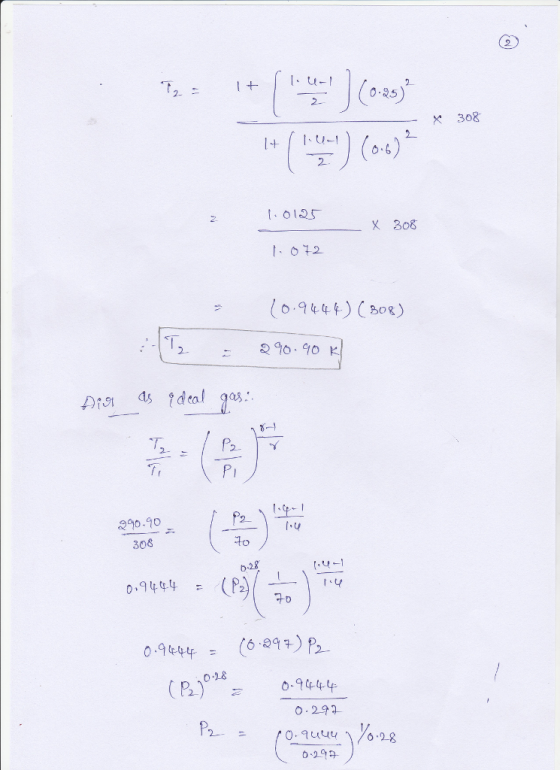 2
T₂ = (1 + [(1.4-1)/2] (0.25)²) / (1 + ((1.4-1)/2) (0.6)²) × 308
= 1.0125 / 1.072 × 308
= (0.9444)(308)
∴ T₂ = 290.90 K
Air as ideal gas:
T₂/T₁ = (P₂/P₁)^((γ-1)/γ)
290.90/308 = (P₂/70)^((1.4-1)/1.4)
0.9444 = (P₂)^0.28 (1/70)^((1.4-1)/1.4)
0.9444 = (0.297) P₂
(P₂)^0.28 = 0.9444/0.297
P₂ = (0.9444/0.297)^(1/0.28)